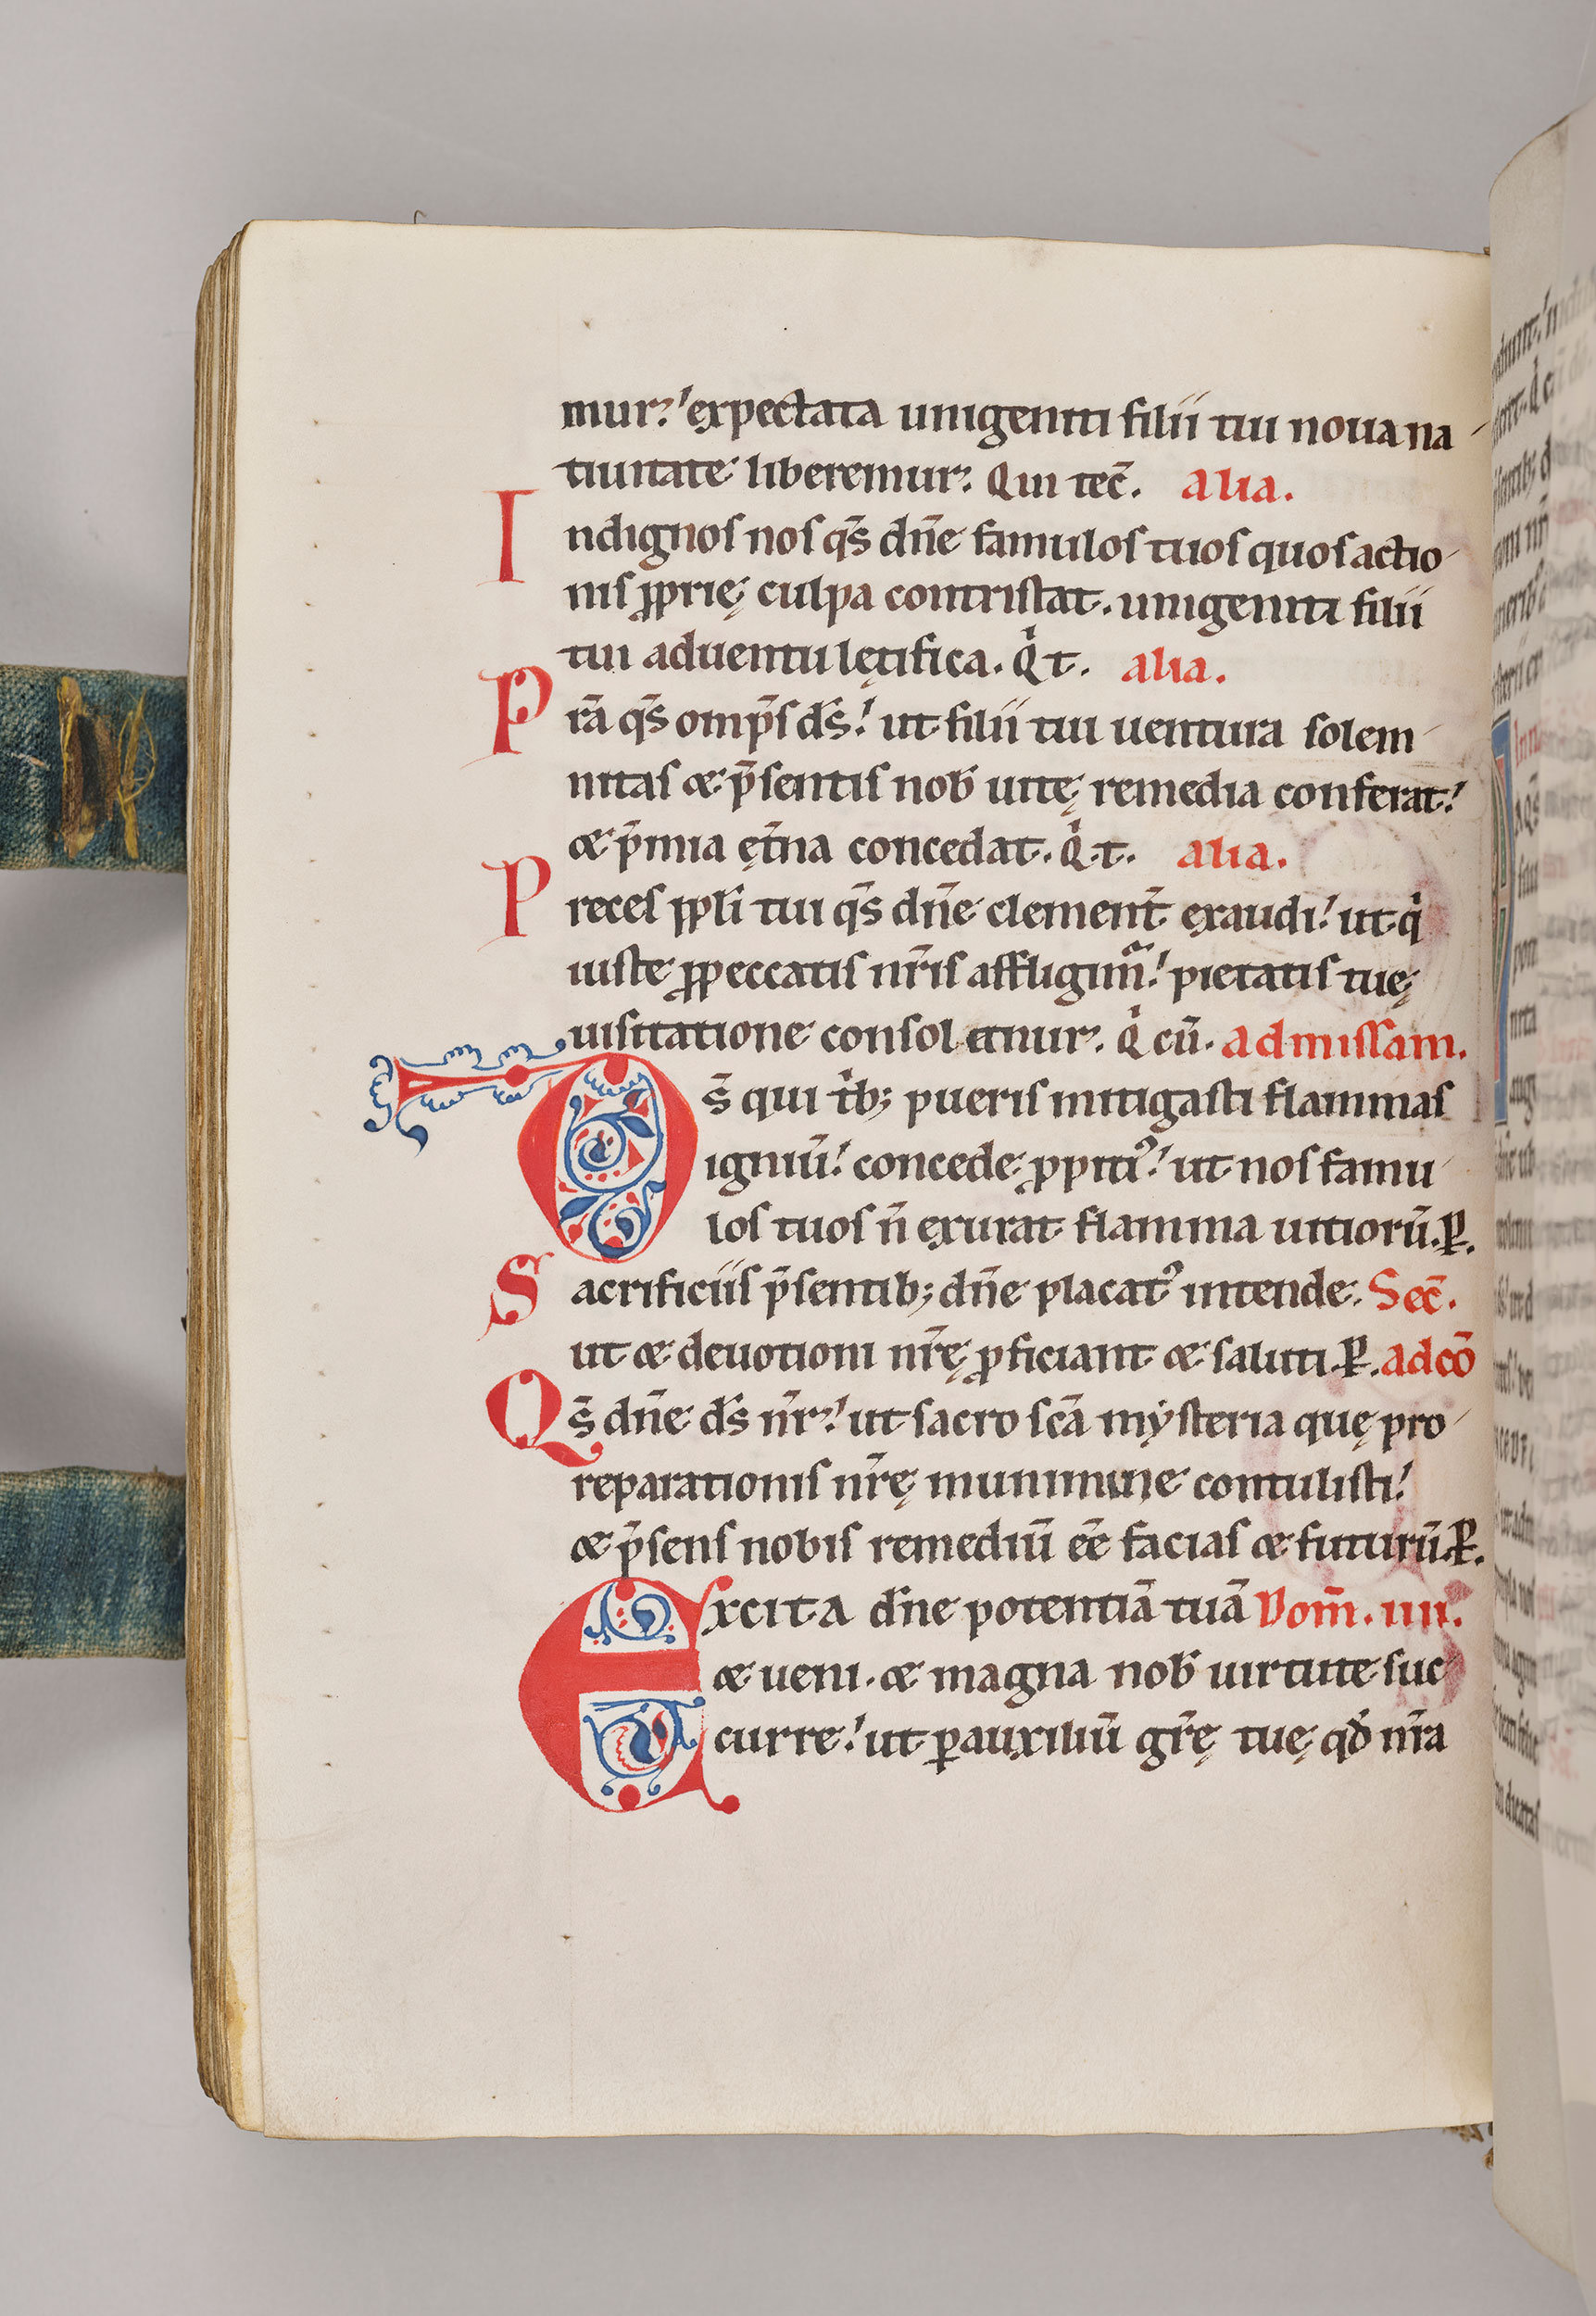 mur. expectata unigeniti filii tui noua na
tiuitate liberemur. Qui tec̄. alia.
Indignos nos q̄s dn̄e famulos tuos quos actio
nis ꝓprię culpa contristat. unigeniti filii
tui aduentu lętifica. Q̇ t. alia.
Pra̅ q̄s omp̄s ds̄! ut filii tui uentura solem
nitas & p̄sentis nob̄ uitę remedia conferat!
& p̄mia ęt̄na concedat. Q̇ t. alia.
Preces ppl̄i tui q̄s dn̄e clement̄ exaudi! ut q̇
iuste ꝓ peccatis nr̄is affligimᷓ! pietatis tuę
uisitatione consolemur. Q̇ cū. ad missam.
Ds̄ qui trib; pueris mitigasti flammas
igniū! concede ꝓpitiꝰ! ut nos famu
los tuos n̄ exurat flamma uitiorū. ꝑ.
Sacrificiis p̄sentib; dn̄e placatꝰ intende. Sec̄.
ut & deuotioni nr̄ę ꝓficiant & saluti. ꝑ. ad cō
Qs̄ dn̄e ds̄ nr̄! ut sacro sc̄a mẏsteria quę pro
reparationis nr̄ę munimine contulisti!
& p̄sens nobis remediū ee̅ facias & futurū. ꝑ.
Excita dn̄e potentiā tuā Dom̄. iiii.
& ueni. & magna nob̄ uirtute suc
curre! ut ꝑ auxiliū gr̄ę tuę qđ nr̄a